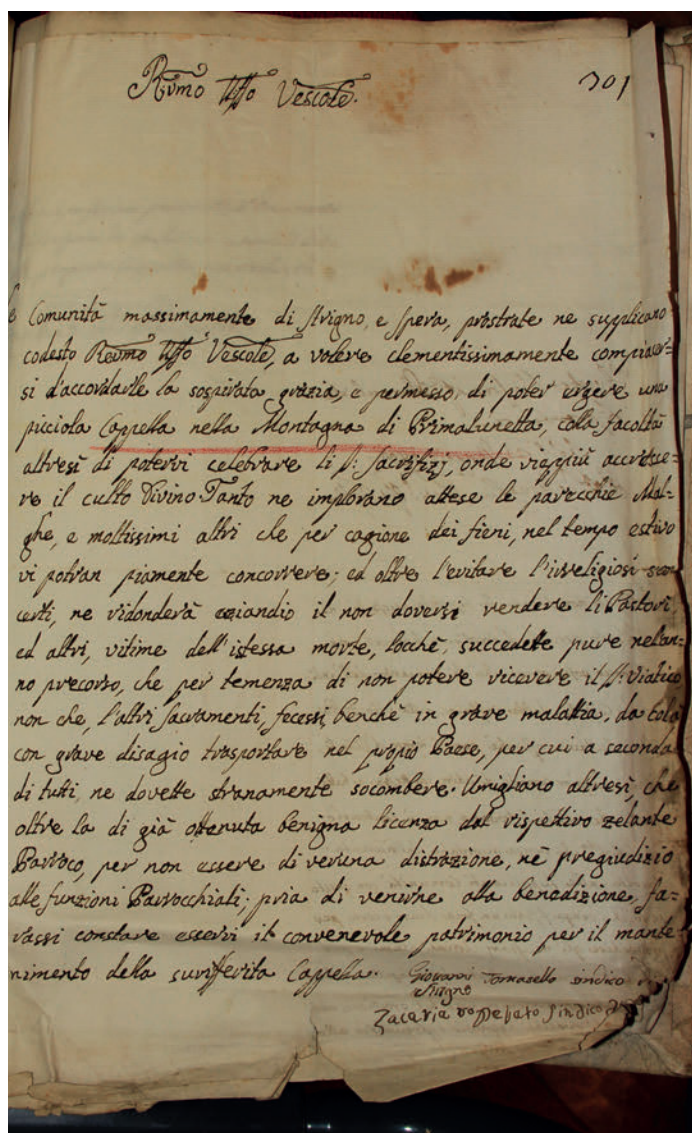 Rvmo Uffo Vescole.
301
le Comunità massimamente di Strigno, e Spera, prostrate ne supplicano
codesto Revmo Uffo Vescole, a volere clementissimamente compiacer=
si d'accordarle la sospirata grazia, e permesso, di poter ergere una
picciola Cappella nella Montagna di Primalunetta, colla facoltà
altresì di potervi celebrare li S: Sacrifizj, onde viappiù accresce=
re il culto Divino. Tanto ne implorano attese le parecchie Mal=
ghe, e moltissimi altri che per cagione dei fieni, nel tempo estivo
vi potran piamente concorrere; ed oltre l'evitare l'irreligiosi scon
certi, ne ridonderà eziandio il non doversi rendere li Pastori,
ed altri, vitime dell'istessa morte, locchè, succedette pure nelan=
no precorso, che per temenza di non potere ricevere il S: Viatico
non che, l'altri Sacramenti, fecessi, benchè in grave malattia, da colà
con grave disagio trasportare nel propio Paese, per cui a seconda
di tutti, ne dovette stranamente socombere. Umigliano altresì, che
oltre la di già ottenuta benigna licenza dal rispettivo zelante
Parroco, per non essere di veruna distrazione, nè pregiudizio
alle funzioni Parrocchiali; pria di venirne alla benedizione, fa=
rassi constare esservi il convenevole patrimonio per il mante
nimento della surifferita Cappella.
Giovanni Tomasello sindico di
Strigno
Zacaria Sindico